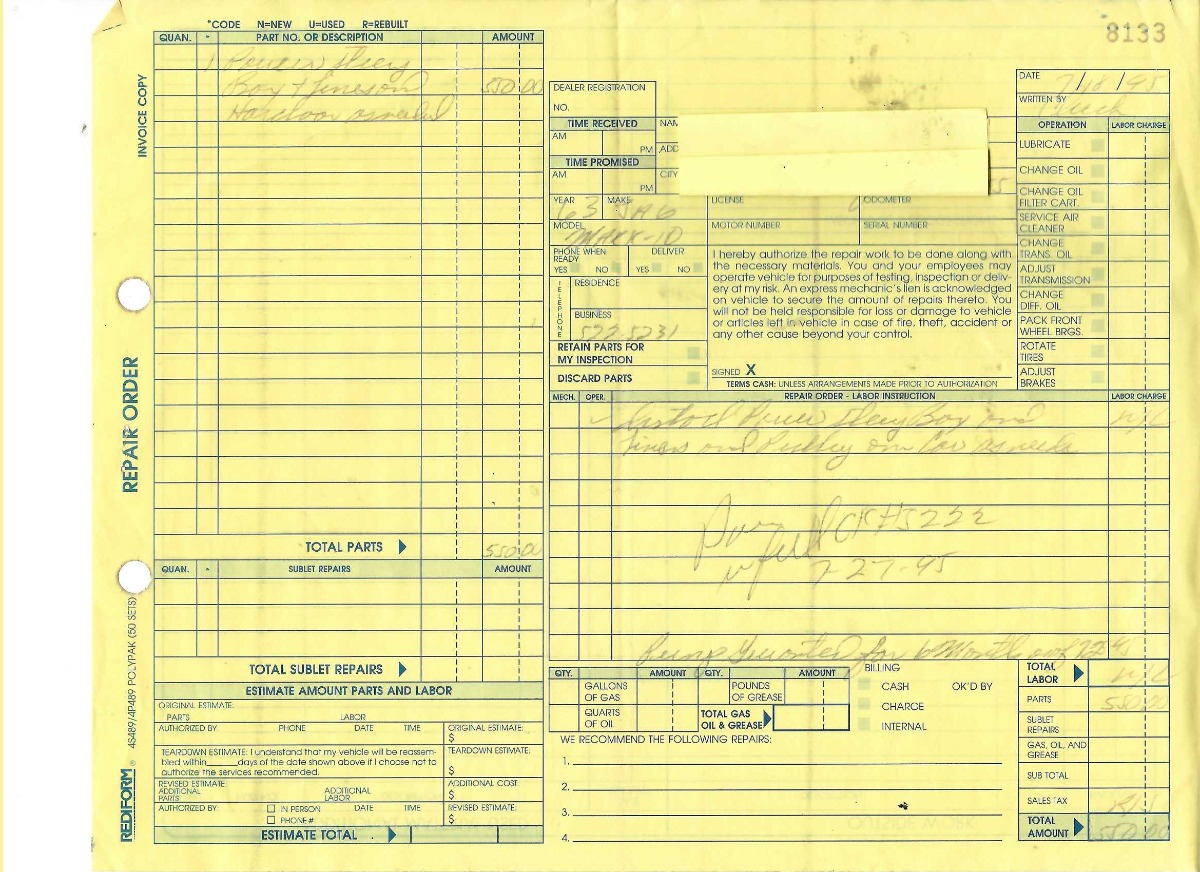 *CODE N=NEW U=USED R=REBUILT
8133
QUAN. * PART NO. OR DESCRIPTION AMOUNT
1 Power Steer
Box + 550.00
as needed
INVOICE COPY
REPAIR ORDER
REDIFORM ® 4S489/4P489 POLYPAK (50 SETS)
TOTAL PARTS 550.00
QUAN. * SUBLET REPAIRS AMOUNT
TOTAL SUBLET REPAIRS
ESTIMATE AMOUNT PARTS AND LABOR
ORIGINAL ESTIMATE:
PARTS LABOR
AUTHORIZED BY: PHONE DATE TIME ORIGINAL ESTIMATE:
$
TEARDOWN ESTIMATE: I understand that my vehicle will be reassem-
bled within______days of the date shown above if I choose not to
authorize the services recommended.
TEARDOWN ESTIMATE:
$
REVISED ESTIMATE:
ADDITIONAL PARTS ADDITIONAL LABOR
ADDITIONAL COST:
$
AUTHORIZED BY: IN PERSON DATE TIME
PHONE#
REVISED ESTIMATE:
$
ESTIMATE TOTAL
DEALER REGISTRATION
NO.
TIME RECEIVED
AM
PM
TIME PROMISED
AM
PM
NAM
ADD
CITY
YEAR MAKE LICENSE ODOMETER
63 JAG
MODEL MOTOR NUMBER SERIAL NUMBER
MARK-10
PHONE WHEN READY DELIVER
YES NO YES NO
TELEPHONE
RESIDENCE
BUSINESS
522-5231
RETAIN PARTS FOR
MY INSPECTION
DISCARD PARTS
I hereby authorize the repair work to be done along with
the necessary materials. You and your employees may
operate vehicle for purposes of testing, inspection or deliv-
ery at my risk. An express mechanic's lien is acknowledged
on vehicle to secure the amount of repairs thereto. You
will not be held responsible for loss or damage to vehicle
or articles left in vehicle in case of fire, theft, accident or
any other cause beyond your control.
SIGNED X
TERMS CASH: UNLESS ARRANGEMENTS MADE PRIOR TO AUTHORIZATION
DATE 7/18/95
WRITTEN BY
OPERATION LABOR CHARGE
LUBRICATE
CHANGE OIL
CHANGE OIL
FILTER CART.
SERVICE AIR
CLEANER
CHANGE
TRANS. OIL
ADJUST
TRANSMISSION
CHANGE
DIFF. OIL
PACK FRONT
WHEEL BRGS.
ROTATE
TIRES
ADJUST
BRAKES
MECH. OPER. REPAIR ORDER - LABOR INSTRUCTION LABOR CHARGE
Power Steer Box and N/C
and on Car as needed
CK#5222
7-27-95
for 6 Months
QTY. AMOUNT QTY. AMOUNT
GALLONS OF GAS POUNDS OF GREASE
QUARTS OF OIL TOTAL GAS OIL & GREASE
BILLING
CASH OK'D BY
CHARGE
INTERNAL
WE RECOMMEND THE FOLLOWING REPAIRS:
1.
2.
3.
4.
TOTAL LABOR N/C
PARTS 550.00
SUBLET REPAIRS
GAS, OIL, AND GREASE
SUB TOTAL
SALES TAX
TOTAL AMOUNT 550.00